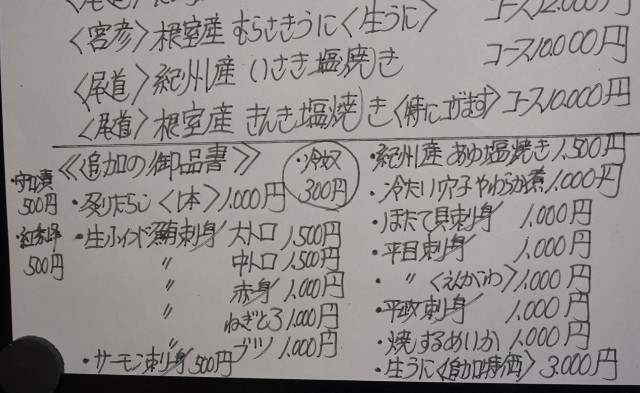 コース12.000円
〈宮彦〉根室産 むらさきうに〈生うに〉 コース10.000円
〈尾道〉紀州産 いさき塩焼き コース10.000円
〈尾道〉根室産 きんき塩焼き〈特に上げます〉コース10.000円
《追加の御品書》
300円
500円
・炙りたらこ〈1本〉1.000円
500円
・生インド鮪刺身 大トロ 1,500円
〃 中トロ 1,500円
〃 赤身 1,000円
〃 ねぎとろ 1,000円
〃 ブツ 1,000円
・サーモン刺身 500円
・紀州産 あゆ塩焼き 1,500円
・冷たい穴子やわらか煮 1,000円
・ほたて貝刺身 1,000円
・平目刺身 1,000円
・〃〈えんがわ〉1,000円
・平政刺身 1,000円
・焼するめいか 1,000円
・生うに〈追加特価〉3.000円